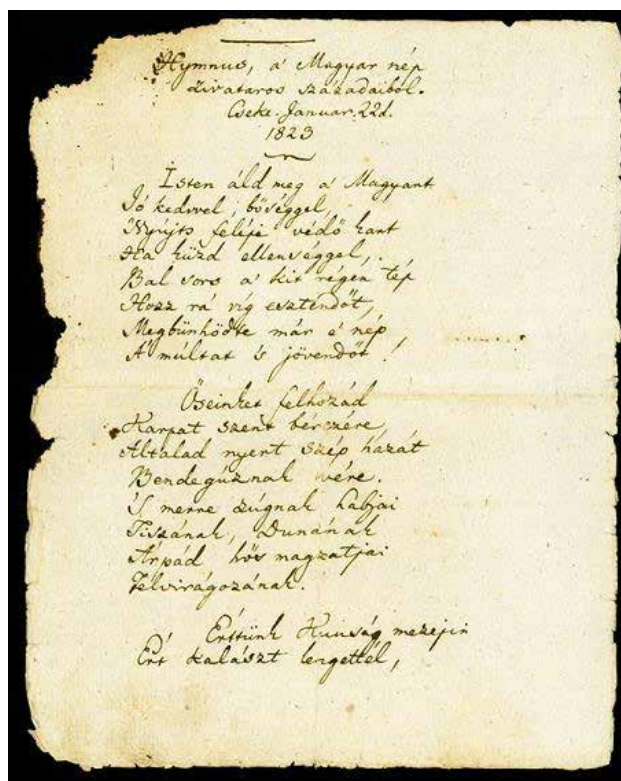 Hymnus, a' Magyar nép
zivataros századaiból.
Cseke. Januar. 22d.
1823
Isten áld meg a' Magyart
Jó kedvvel, bőséggel,
Nyújts feléje védő kart
Ha küzd ellenséggel,
Bal sors a' kit régen tép
Hozz rá víg esztendőt,
Megbűnhődte már e' nép,
A' múltat 's jövendőt!
Őseinket felhozád
Kárpát szent bérczére,
Általad nyert szép hazát
Bendegúznak vére.
'S merre zúgnak habjai
Tiszának, Dunának
Árpád hős magzatjai
Felvirágozának.
Értünk Kunság mezejin
Ért kalászt lengettél,